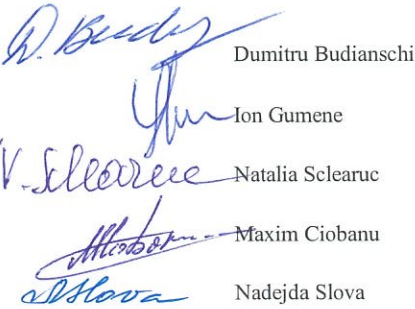 D. Budi Dumitru Budianschi
Ion Gumene
N. Sclearuc Natalia Sclearuc
Maxim Ciobanu
Slova Nadejda Slova